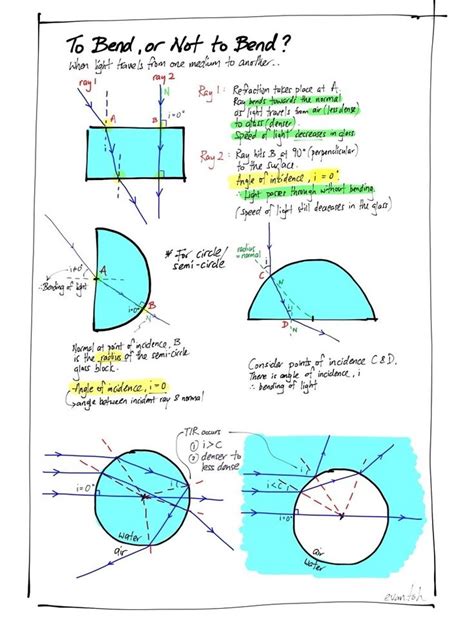 To Bend, or Not to Bend?
When light travels from one medium to another..
ray 1
ray 2
N
A
B
i=0°
Ray 1 : Refraction takes place at A.
Ray bends towards the normal
as light travels from air (less dense)
to glass (denser)
Speed of light decreases in glass
Ray 2 : Ray hits B at 90° (perpendicular)
to the surface.
Angle of incidence, i = 0°
∴ Light passes through without bending.
(speed of light still decreases in the glass)
i≠0°
∴ Bending of light
A
B
i=0°
N
* For circle/
semi-circle
radius
= normal
C
N
D
N
Normal at point of incidence, B
is the radius of the semi-circle
glass block.
∴ Angle of incidence, i = 0
(→ angle between incident ray & normal
Consider points of incidence C & D.
There is angle of incidence, i
∴ bending of light
TIR occurs
① i>c
② denser to
less dense
i=0°
water
air
i>c
i<c
i=0°
air
water
evantoh